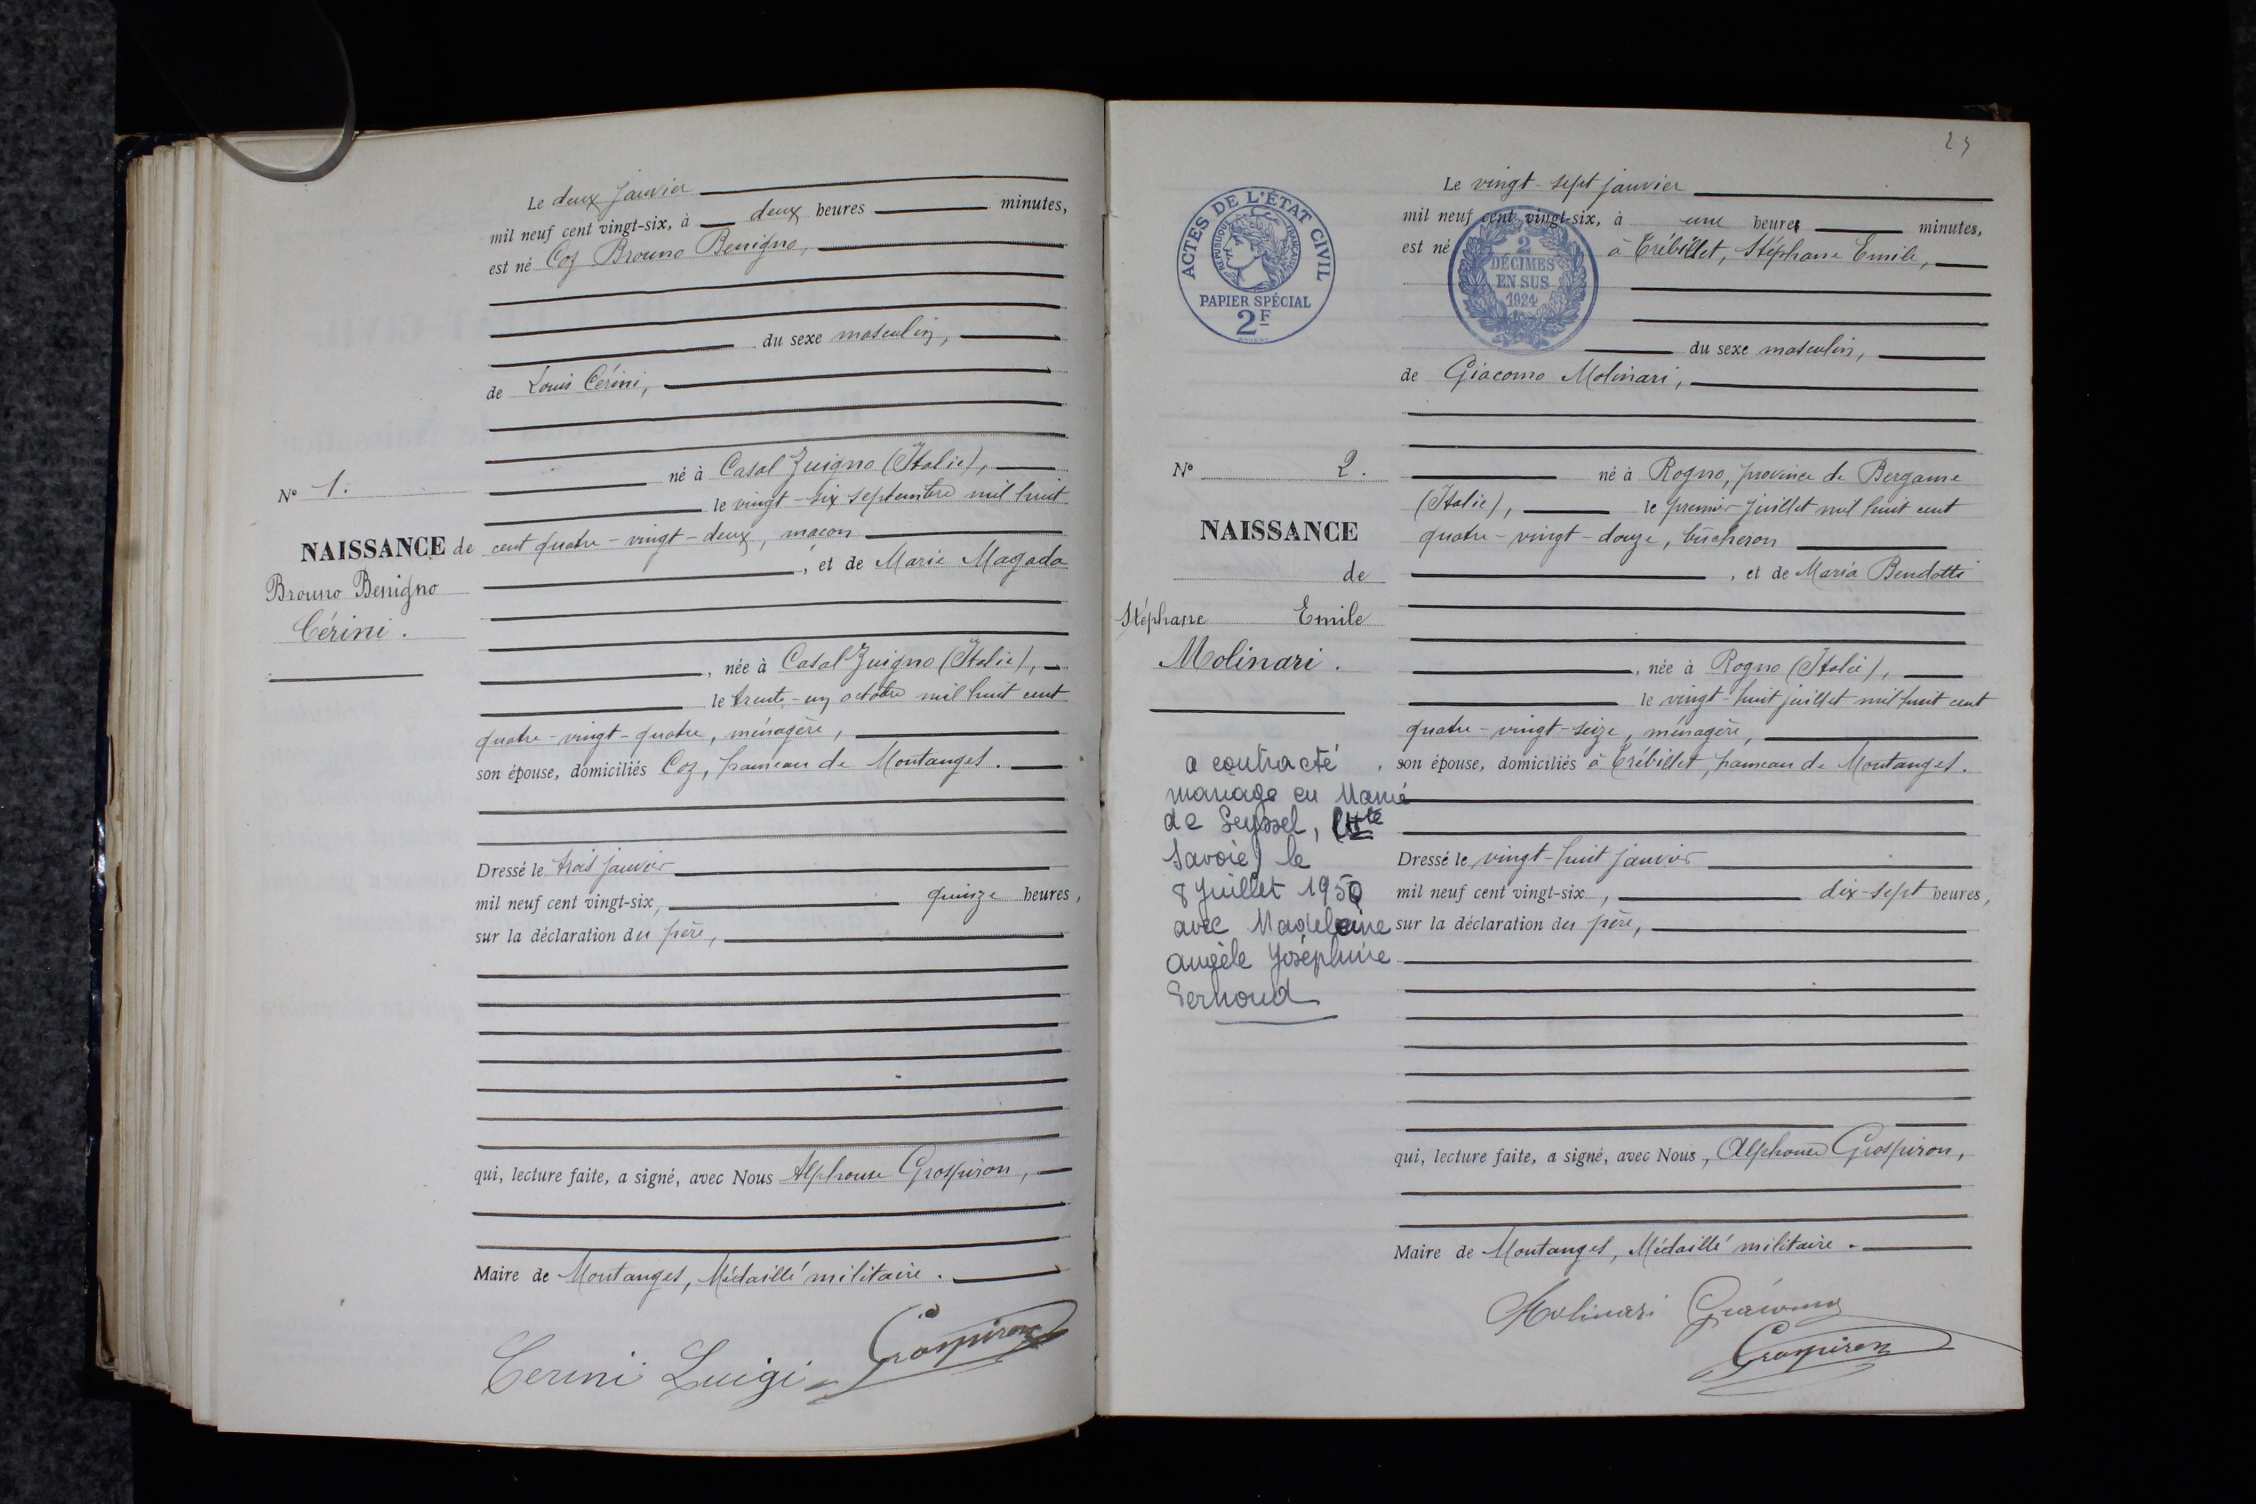 Le deux janvier
mil neuf cent vingt-six, à deux heures minutes,
est né Coz Brouno Benigno,
du sexe masculin,
de Louis Cérini,
né à Casal Zuigno (Italie),
le vingt-six septembre mil huit
cent quatre-vingt-deux, maçon
, et de Marie Magada
, née à Casal Zuigno (Italie),
le trente-un octobre mil huit cent
quatre-vingt-quatre, ménagère,
son épouse, domiciliés Coz, hameau de Montanges.
Dressé le trois janvier
mil neuf cent vingt-six, quinze heures,
sur la déclaration du père,
qui, lecture faite, a signé, avec Nous Alphonse Grospiron,
Maire de Montanges, Médaillé militaire.
Cerini Luigi
Grospiron
N° 1.
NAISSANCE de
Brouno Benigno
Cérini.
ACTES DE L'ÉTAT CIVIL
RÉPUBLIQUE FRANÇAISE
PAPIER SPÉCIAL
2F
2
DÉCIMES
EN SUS
1924
Le vingt-sept janvier
mil neuf cent vingt-six, à une heure minutes,
est né à Trébillet, Stéphane Emile,
du sexe masculin,
de Giacomo Molinari,
né à Rogno, province de Bergame
(Italie), le premier juillet mil huit cent
quatre-vingt-douze, bûcheron
, et de Maria Bendotti
, née à Rogno (Italie),
le vingt-huit juillet mil huit cent
quatre-vingt-seize, ménagère,
son épouse, domiciliés à Trébillet, hameau de Montanges.
Dressé le vingt-huit janvier
mil neuf cent vingt-six, dix-sept heures,
sur la déclaration du père,
qui, lecture faite, a signé, avec Nous, Alphonse Grospiron,
Maire de Montanges, Médaillé militaire.
Molinari Giacomo
Grospiron
N° 2.
NAISSANCE
de
Stéphane Emile
Molinari.
a contracté
mariage en Mairie
de Seyssel, (Hte
Savoie) le
8 Juillet 1950
avec Madeleine
Angèle Joséphine